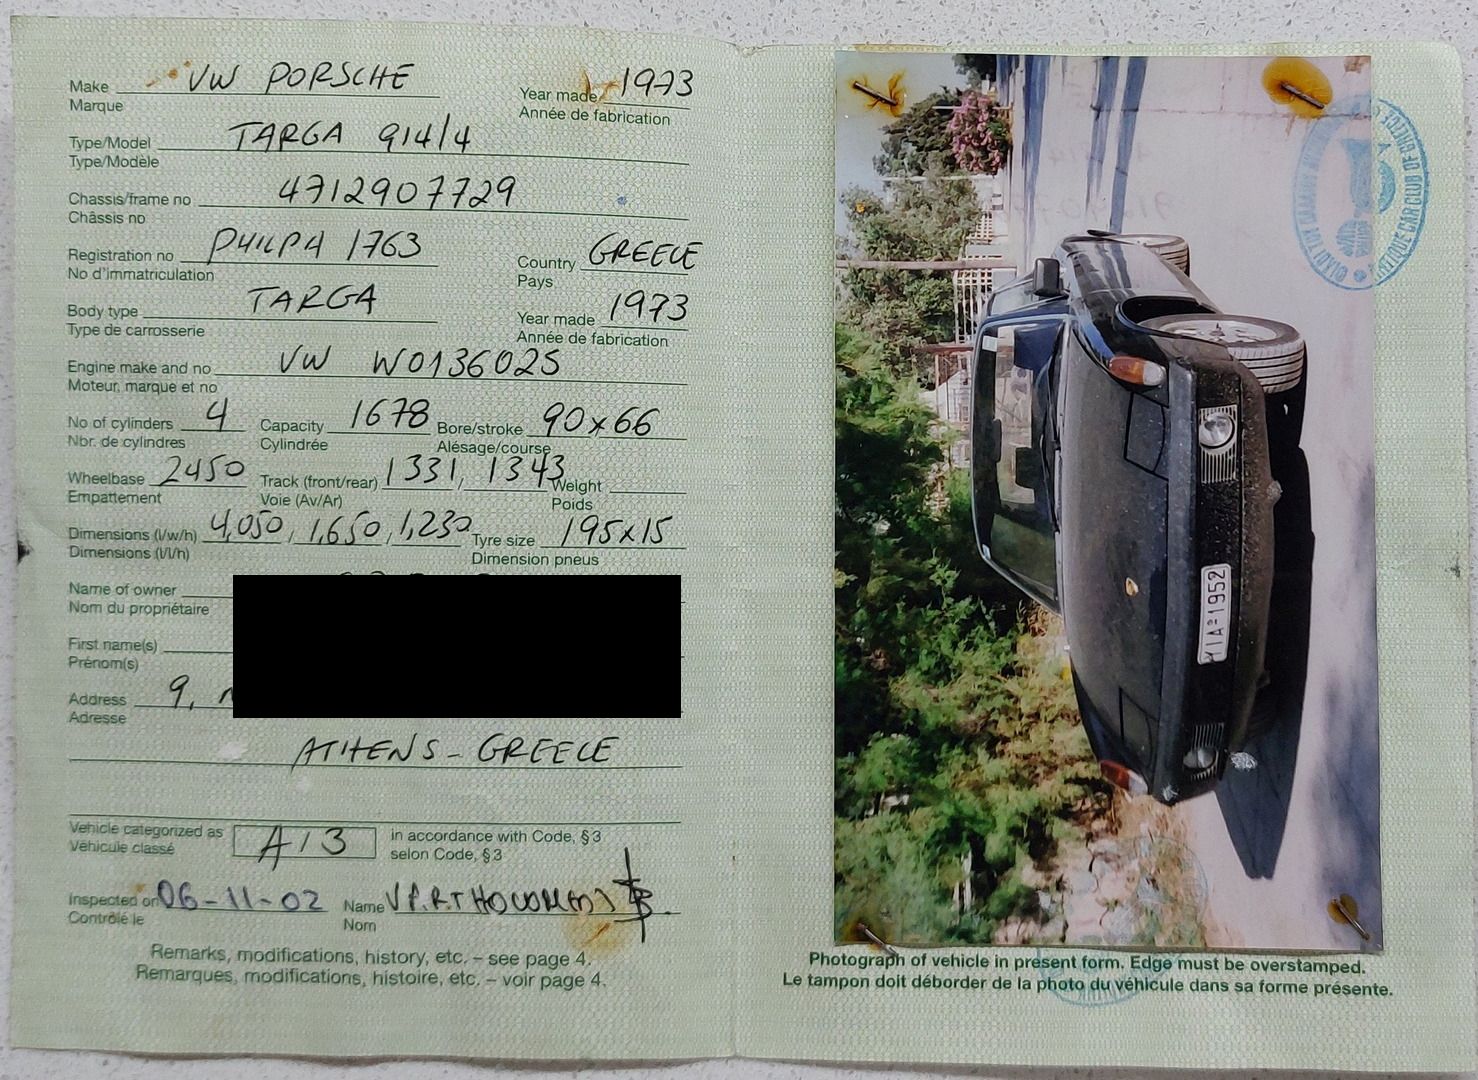 Make VW PORSCHE Year made 1973
Marque Année de fabrication
Type/Model TARGA 914/4
Type/Modèle
Chassis/frame no 4712907729
Châssis no
Registration no PHILPA 1763 Country GREECE
No d'immatriculation Pays
Body type TARGA Year made 1973
Type de carrosserie Année de fabrication
Engine make and no VW W0136025
Moteur, marque et no
No of cylinders 4 Capacity 1678 Bore/stroke 90x66
Nbr. de cylindres Cylindrée Alésage/course
Wheelbase 2450 Track (front/rear) 1331, 1343 Weight
Empattement Voie (Av/Ar) Poids
Dimensions (l/w/h) 4,050, 1,650, 1,230 Tyre size 195x15
Dimensions (l/l/h) Dimension pneus
Name of owner
Nom du propriétaire
First name(s)
Prénom(s)
Address 9,
Adresse
ATHENS - GREECE
Vehicle categorized as A/3 in accordance with Code, § 3
Véhicule classé selon Code, § 3
Inspected on 06-11-02 Name
Contrôlé le Nom
Remarks, modifications, history, etc. – see page 4.
Remarques, modifications, histoire, etc. – voir page 4.
YIA-1952
ANTIQUE CAR CLUB OF GREECE
Photograph of vehicle in present form. Edge must be overstamped.
Le tampon doit déborder de la photo du véhicule dans sa forme présente.